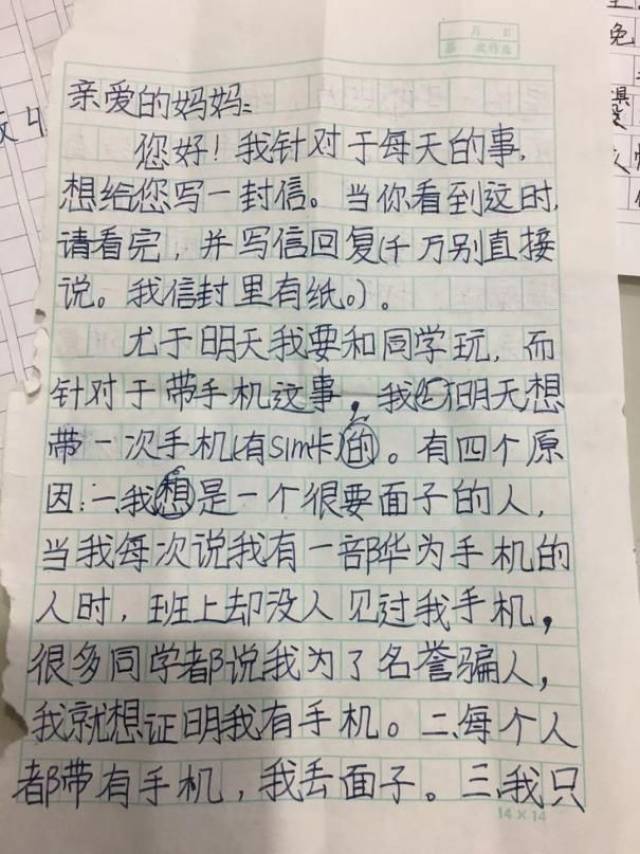 月 日
第 次作业
亲爱的妈妈:
您好!我针对于每天的事,
想给您写一封信。当你看到这时,
请看完,并写信回复(千万别直接
说。我信封里有纸。)。
尤于明天我要和同学玩,而
针对于带手机这事,我明天想
带一次手机(有SIM卡)的。有四个原
因:一、我想是一个很要面子的人,
当我每次说我有一部华为手机的
人时,班上却没人见过我手机,
很多同学都说我为了名誉骗人,
我就想证明我有手机。二、每个人
都带有手机,我丢面子。三、我只
14×14
免